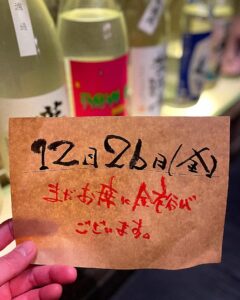 12月26日(金)
まだお席に余裕が
ございます。